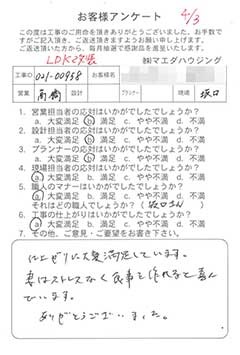 お客様アンケート
4/3
この度は工事のご用命を頂きありがとうございました。お手数で
すがご記入頂き、ご返送頂きますようお願い申し上げます。
ご返送頂いた方から、毎月抽選で感謝品を進呈いたします。
LDK改装
㈱マエダハウジング
工事ID 021-00958 お客様名
営業 高橋 設計 プランナー 現場 坂口
1. 営業担当者の応対はいかがでしたでしょうか？
a. 大変満足 b. 満足 c. やや不満 d. 不満
2. 設計担当者の応対はいかがでしたでしょうか？
a. 大変満足 b. 満足 c. やや不満 d. 不満
3. プランナーの応対はいかがでしたでしょうか？
a. 大変満足 b. 満足 c. やや不満 d. 不満
4. 現場担当者の応対はいかがでしたでしょうか？
a. 大変満足 b. 満足 c. やや不満 d. 不満
5. 職人のマナーはいかがでしたでしょうか？
a. 大変満足 b. 満足 c. やや不満 d. 不満
それはどの職人でしょうか？（坂口さん）
6. 工事の仕上がりはいかがでしたでしょうか？
a. 大変満足 b. 満足 c. やや不満 d. 不満
7. その他、ご意見・ご要望をお書き下さい。
仕上がりに大変満足しています。
妻はストレスなく食事を作れると喜ん
でいます。
ありがとうございました。